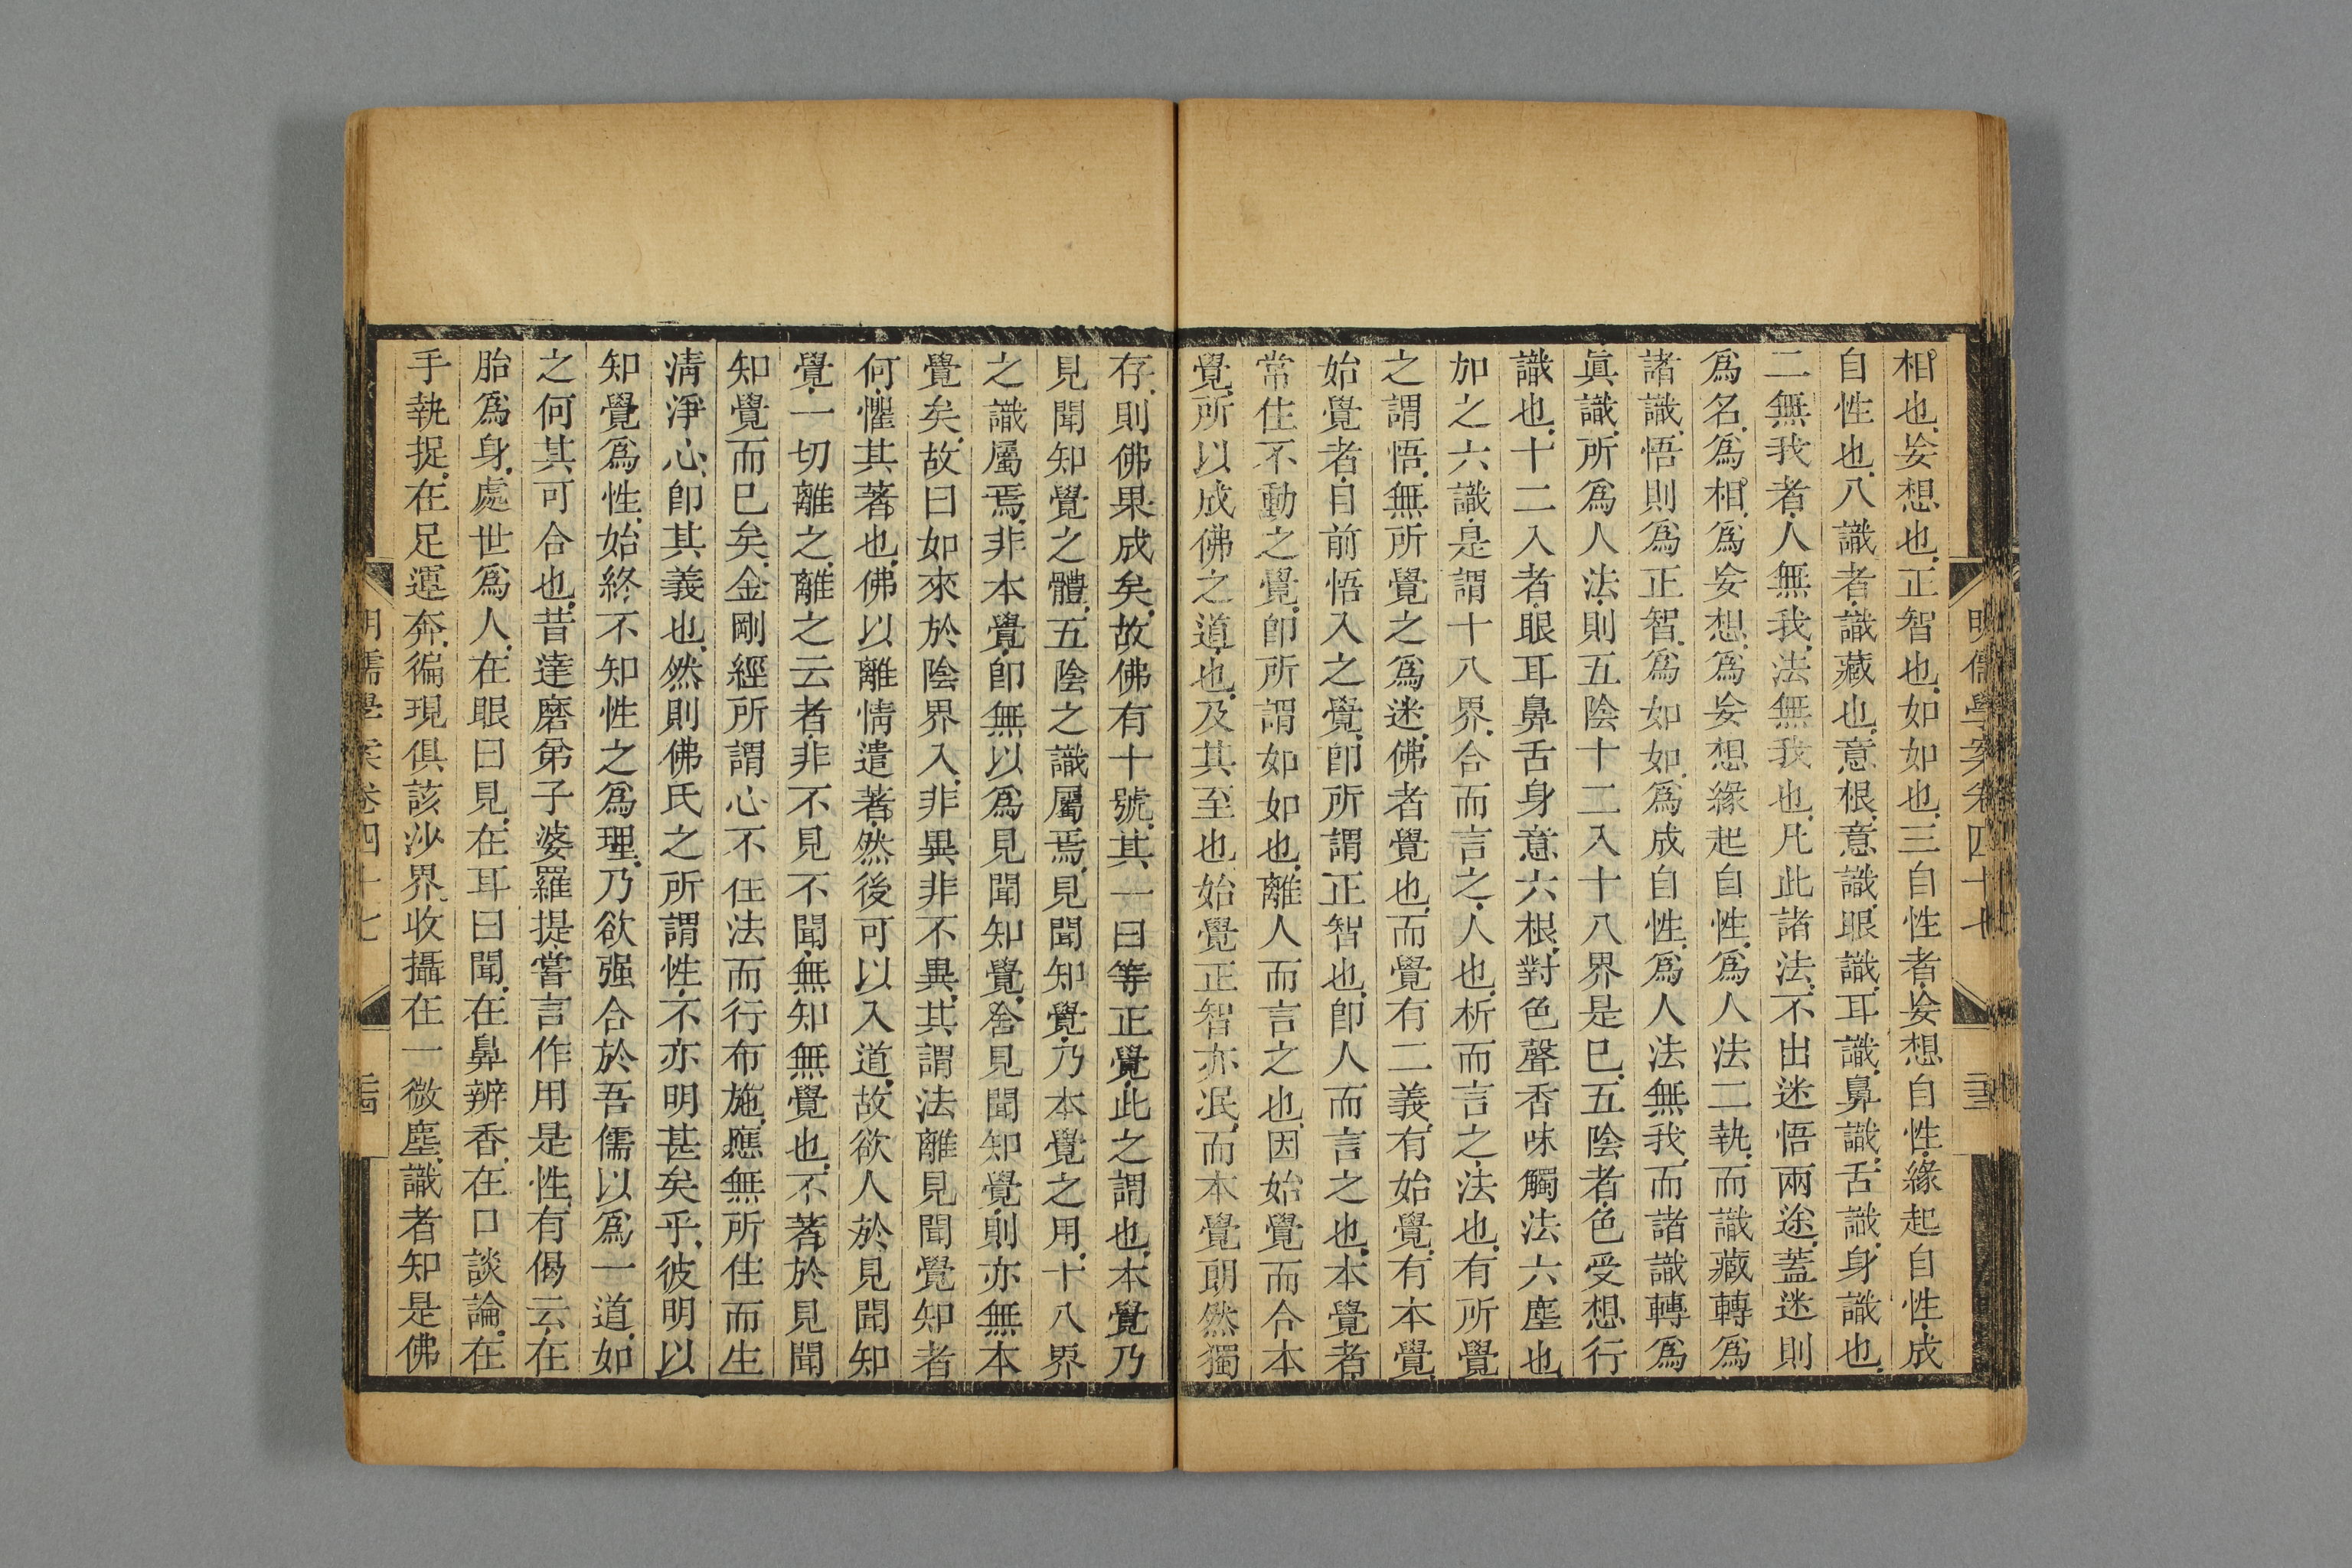 相也妄想也正智也如如也三自性者妄想自性緣起自性成
自性也八識者識藏也意根意識眼識耳識鼻識舌識身識也
二無我者人無我法無我也凡此諸法不出迷悟兩途蓋迷則
爲名爲相爲妄想爲妄想緣起自性爲人法二執而識藏轉爲
諸識悟則爲正智爲如如爲成自性爲人法無我而諸識轉爲
眞識所爲人法則五陰十二入十八界是已五陰者色受想行
識也十二入者眼耳鼻舌身意六根對色聲香味觸法六塵也
加之六識是謂十八界合而言之人也析而言之法也有所覺
之謂悟無所覺之爲迷佛者覺也而覺有二義有始覺有本覺
始覺者目前悟入之覺卽所謂正智也卽人而言之也本覺者
常住不動之覺卽所謂如如也離人而言之也因始覺而合本
覺所以成佛之道也及其至也始覺正智亦泯而本覺朗然獨
存則佛果成矣故佛有十號其一曰等正覺此之謂也本覺乃
見聞知覺之體五陰之識屬焉見聞知覺乃本覺之用十八界
之識屬焉非本覺卽無以爲見聞知覺舍見聞知覺則亦無本
覺矣故曰如來於陰界入非異非不異其謂法離見聞覺知者
何懼其著也佛以離情遣著然後可以入道故欲人於見聞知
覺一切離之離之云者非不見不聞無知無覺也不著於見聞
知覺而已矣金剛經所謂心不住法而行布施應無所住而生
淸淨心卽其義也然則佛氏之所謂性不亦明甚矣乎彼明以
知覺爲性始終不知性之爲理乃欲强合於吾儒以爲一道如
之何其可合也昔達磨弟子婆羅提嘗言作用是性有偈云在
胎爲身處世爲人在眼曰見在耳曰聞在鼻辨香在口談論在
手執捉在足運奔徧現俱該沙界收攝在一微塵識者知是佛
明儒學案卷四十七
明儒學案卷四十七